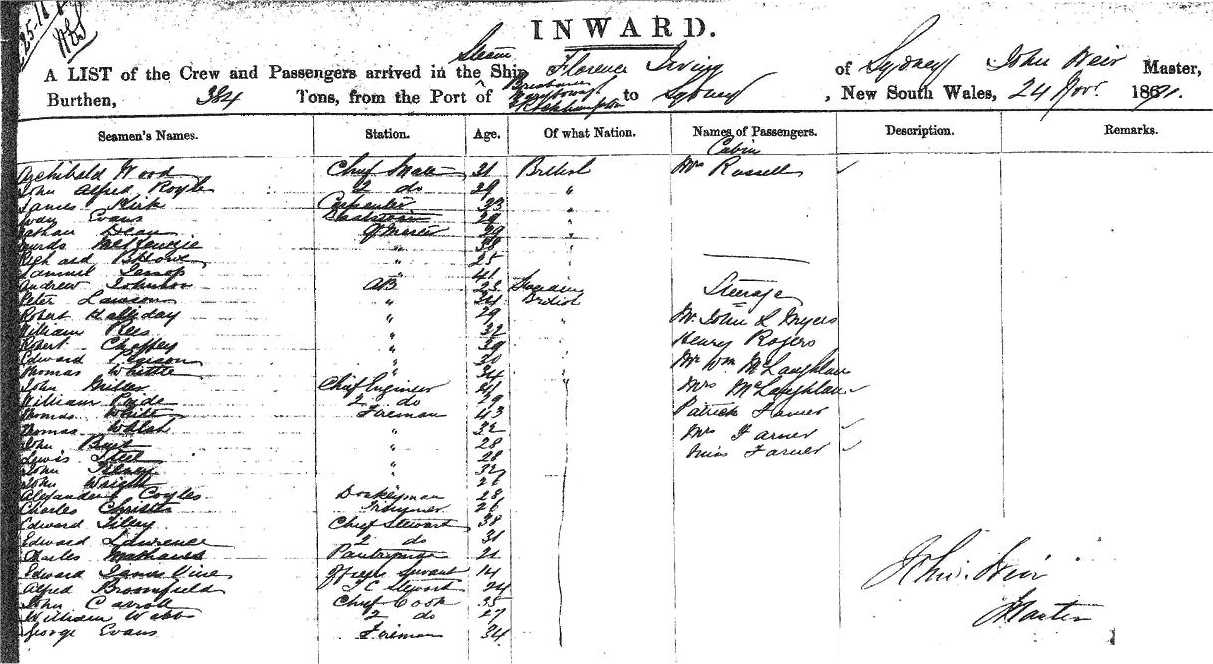 INWARD.
Steam
A LIST of the Crew and Passengers arrived in the Ship Florence Irving of Sydney John Weir Master,
Brisbane
Burthen, 384 Tons, from the Port of Maryborough to Sydney, New South Wales, 24 Novr. 1871.
& Rockhampton
Seamen's Names. Station. Age. Of what Nation. Names of Passengers. Description. Remarks.
Cabin
Archibald Wood Chief Mate 31 British Mr Russell
John Alfred Royle 2 do 29 "
James Kirk Carpenter 33 "
Evans 29 "
Nathan Dean 39 "
McKenzie " 33 "
Richard " 25
Samuel Jessop " 41
Andrew Johnson AB 23 Sweden Steerage
Peter Lawson " 24 British
Robert Halliday " 29 Mr. John S Myers
William Rees " 32 "
Robert Chaffey " 39 Henry Rogers
Edward Pearson " 30 Mr Wm McLaughlan
Thomas Whittle " 34 "
John Miller Chief Engineer 41 Mrs McLaughlan
William 2 do 29
Thomas White Fireman 43 Patrick Farner
Thomas Walsh " 32 Mrs Farner
John " 28
Lewis Steel " 28 Miss Farner
John " 32
John Wright 26
Alexander Coyles Donkeyman 28
Charles Christie Trimmer 26
Edward Tilley Chief Stewart 38
Edward Lawrence 2 do 31
Charles Mathews Pantryman 21
Edward James Vine Officers Servant 14
Alfred Broomfield F C Stewart 24
John Carroll Chief Cook 35
William Webb 2 do 27
George Evans Fireman 34
John Weir
Master